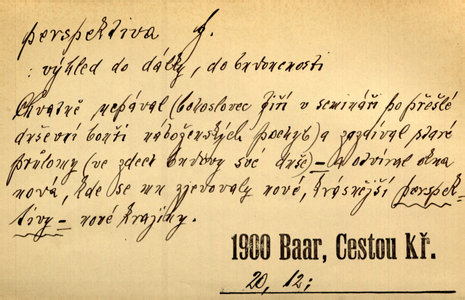 perspektiva f.
: výhled do dálky, do budoucnosti
Chvatně nepával (bohoslovec Jiří v semináři po přešlé
duševní bouři náboženských pochyb) a zazdíval staré
průlomy (ve zdech budovy své duše) – a otvíral okna
nová, kde se mu zjevovaly nové, krásnější perspek-
tivy – nové krajiny.
1900 Baar, Cestou Kř.
20, 12;